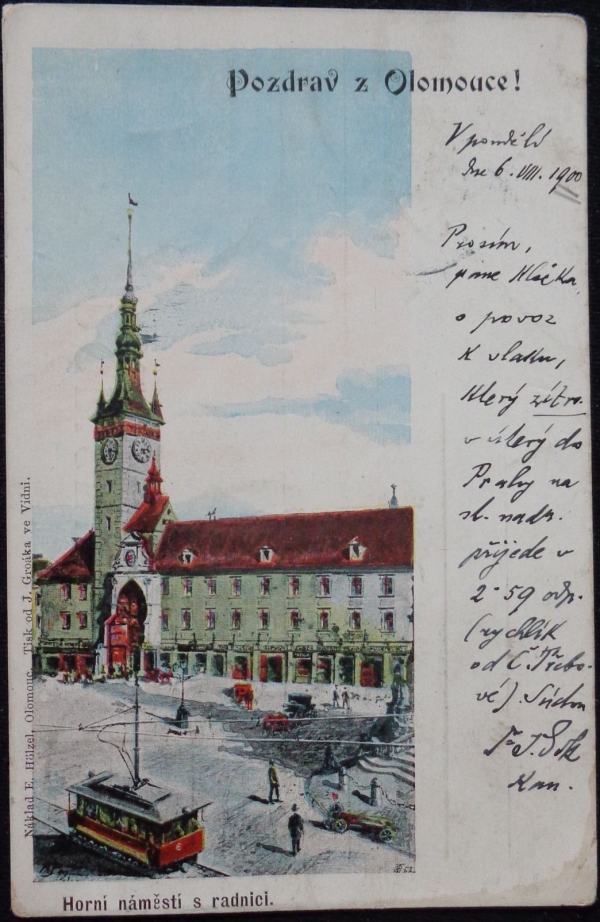 Pozdrav z Olomouce!
V pondělí
dne 6. VIII. 1900
Prosím,
pane
o povoz
k vlaku,
který zítra
v úterý do
Prahy na
st. nádr.
přijede v
2 59 odp.
(rychlík
od Č. Třebo-
vé).
Náklad E. Hölzel, Olomouc. Tisk od J. Groáka ve Vídni.
6
Horní náměstí s radnicí.